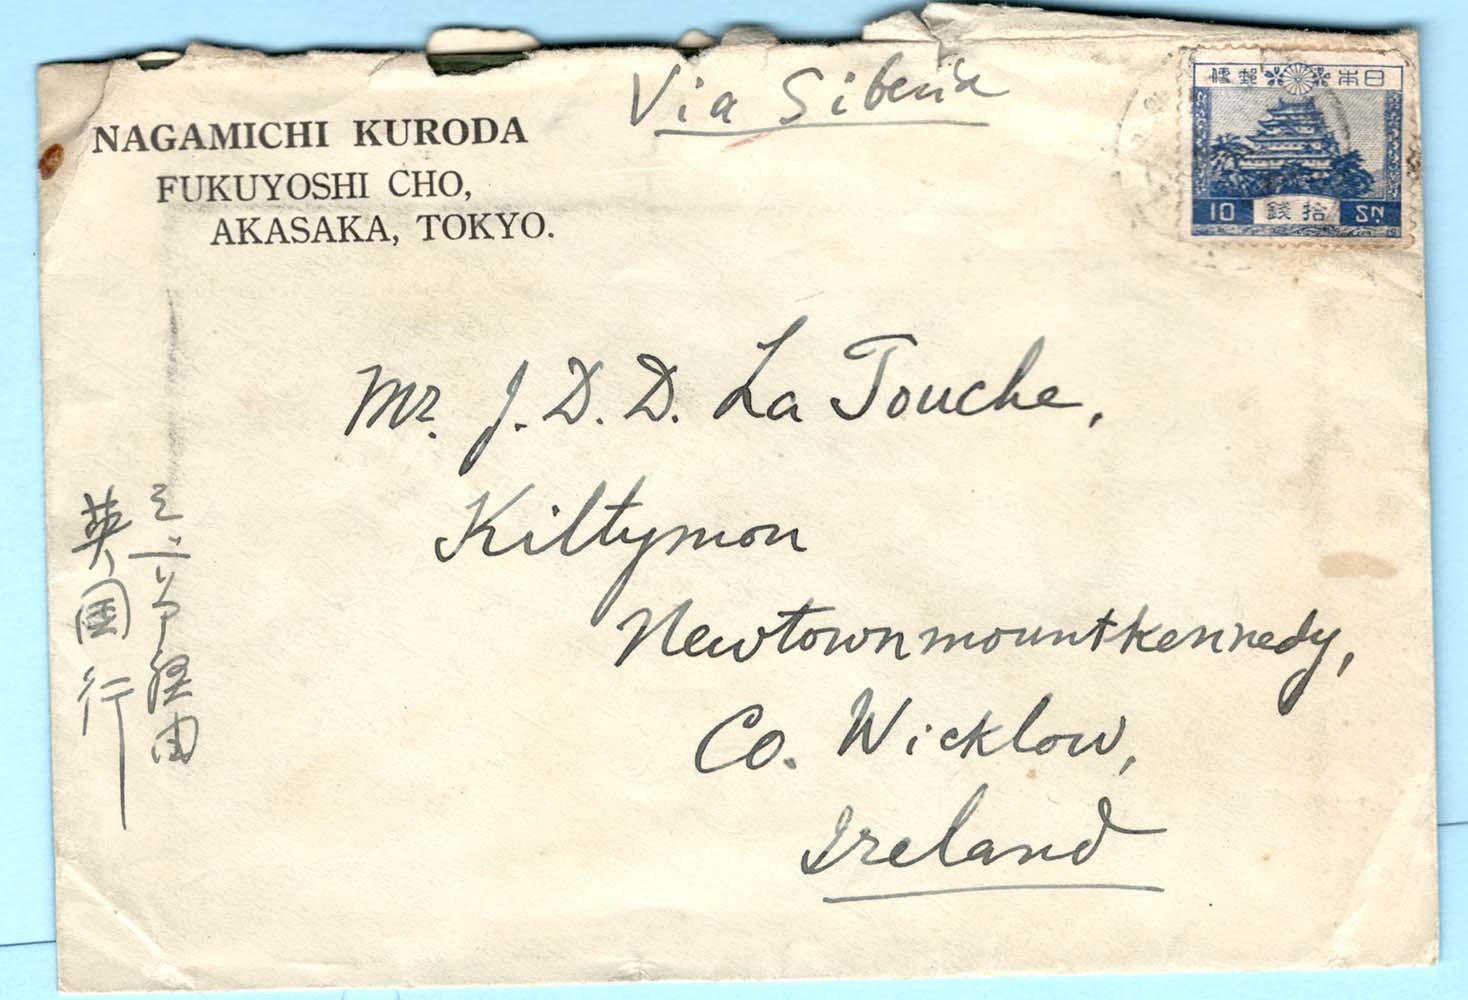 Via Siberia
NAGAMICHI KURODA
FUKUYOSHI CHO,
AKASAKA, TOKYO.
便郵本日
10 錢拾 SN
Mr. J. D. D. La Touche,
Kiltymon
Newtownmountkennedy,
Co. Wicklow,
Ireland
経由
英国行